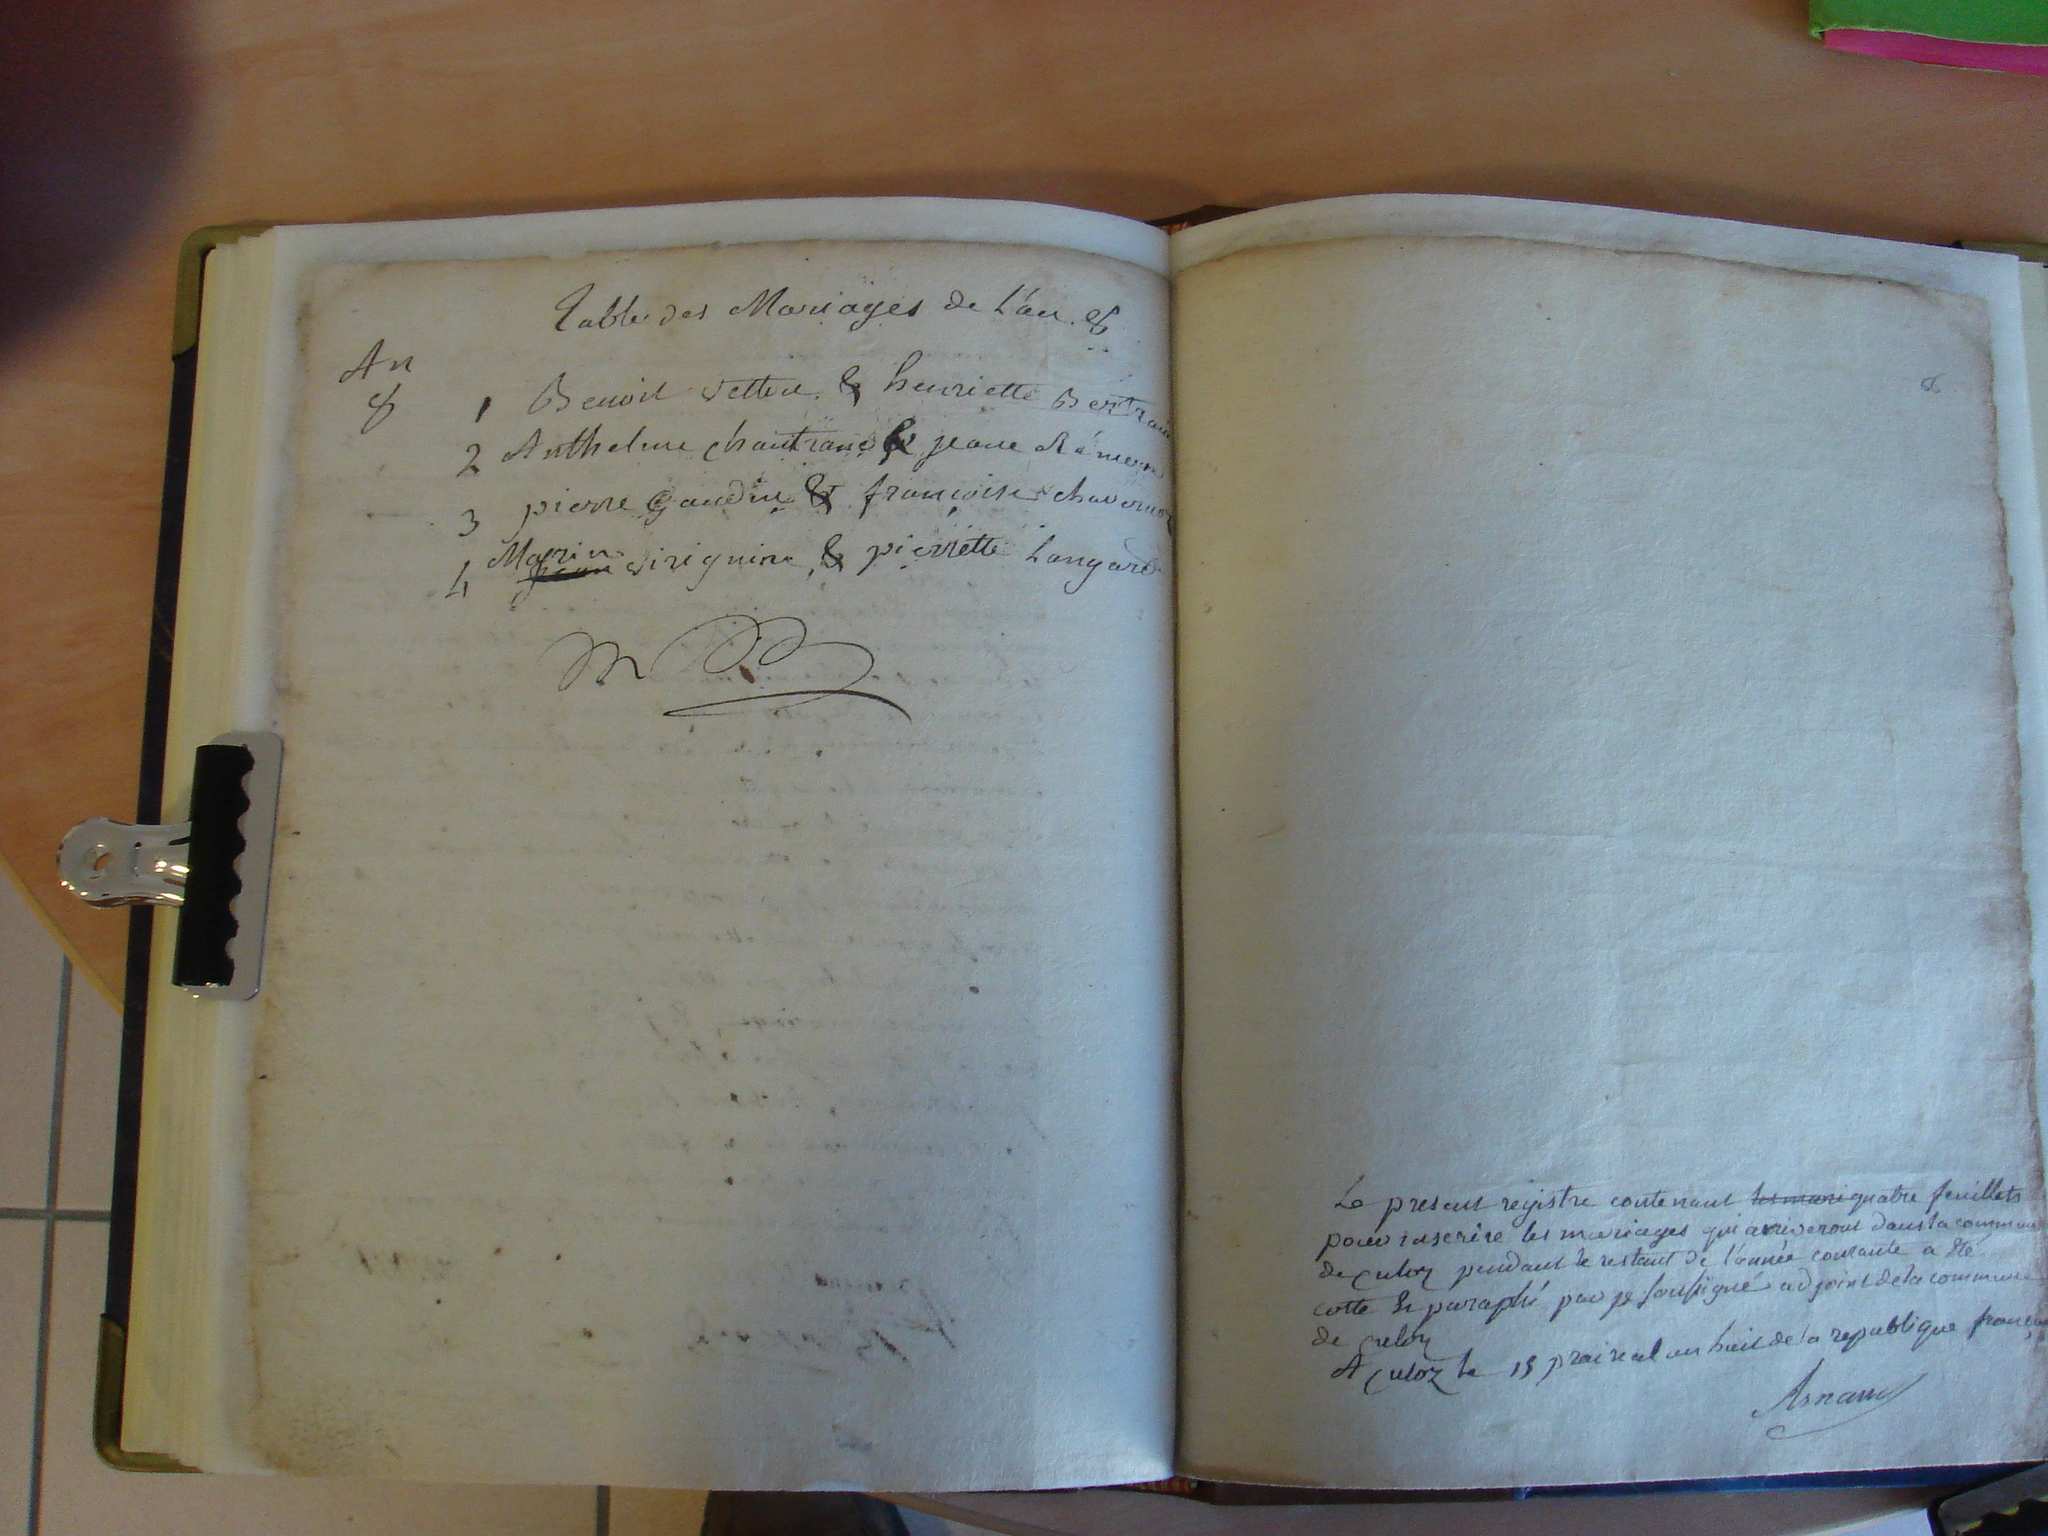 Table des Mariages de L'an 8
An
8
1 Benoit & henriette Bertrand
2 Anthelme chautrane & jeane
3 pierre Gaudin & francoise chavernoz
4 Marin jean & pierrette Langard
Le present registre contenant les mari quatre feuillets
pour inscrire les mariages qui arriveront dans la commune
de culoz pendant le restant de l'année courante a été
cotté & paraphé par je soussigné adjoint de la commune
de culoz
A culoz le 15 prairial an huit de la republique française